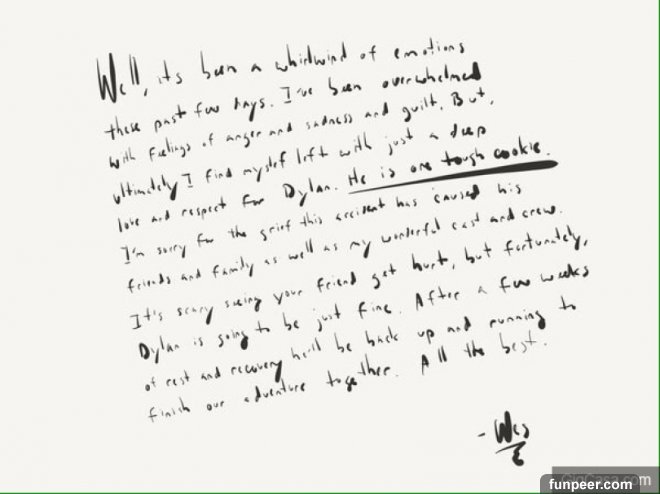 Well, its been a whirlwind of emotions
these past few days. I've been overwhelmed
with feelings of anger and sadness and guilt. But,
ultimately I find myslef left with just a deep
love and respect for Dylan. He is one tough cookie.
I'm sorry for the grief this accident has caused his
friends and family as well as my wonderful cast and crew.
It's scary seeing your friend get hurt, but fortunately,
Dylan is going to be just fine. After a few weeks
of rest and recovery he'll be back up and running to
finish our adventure together. All the best.
- Wes
funpeer.com